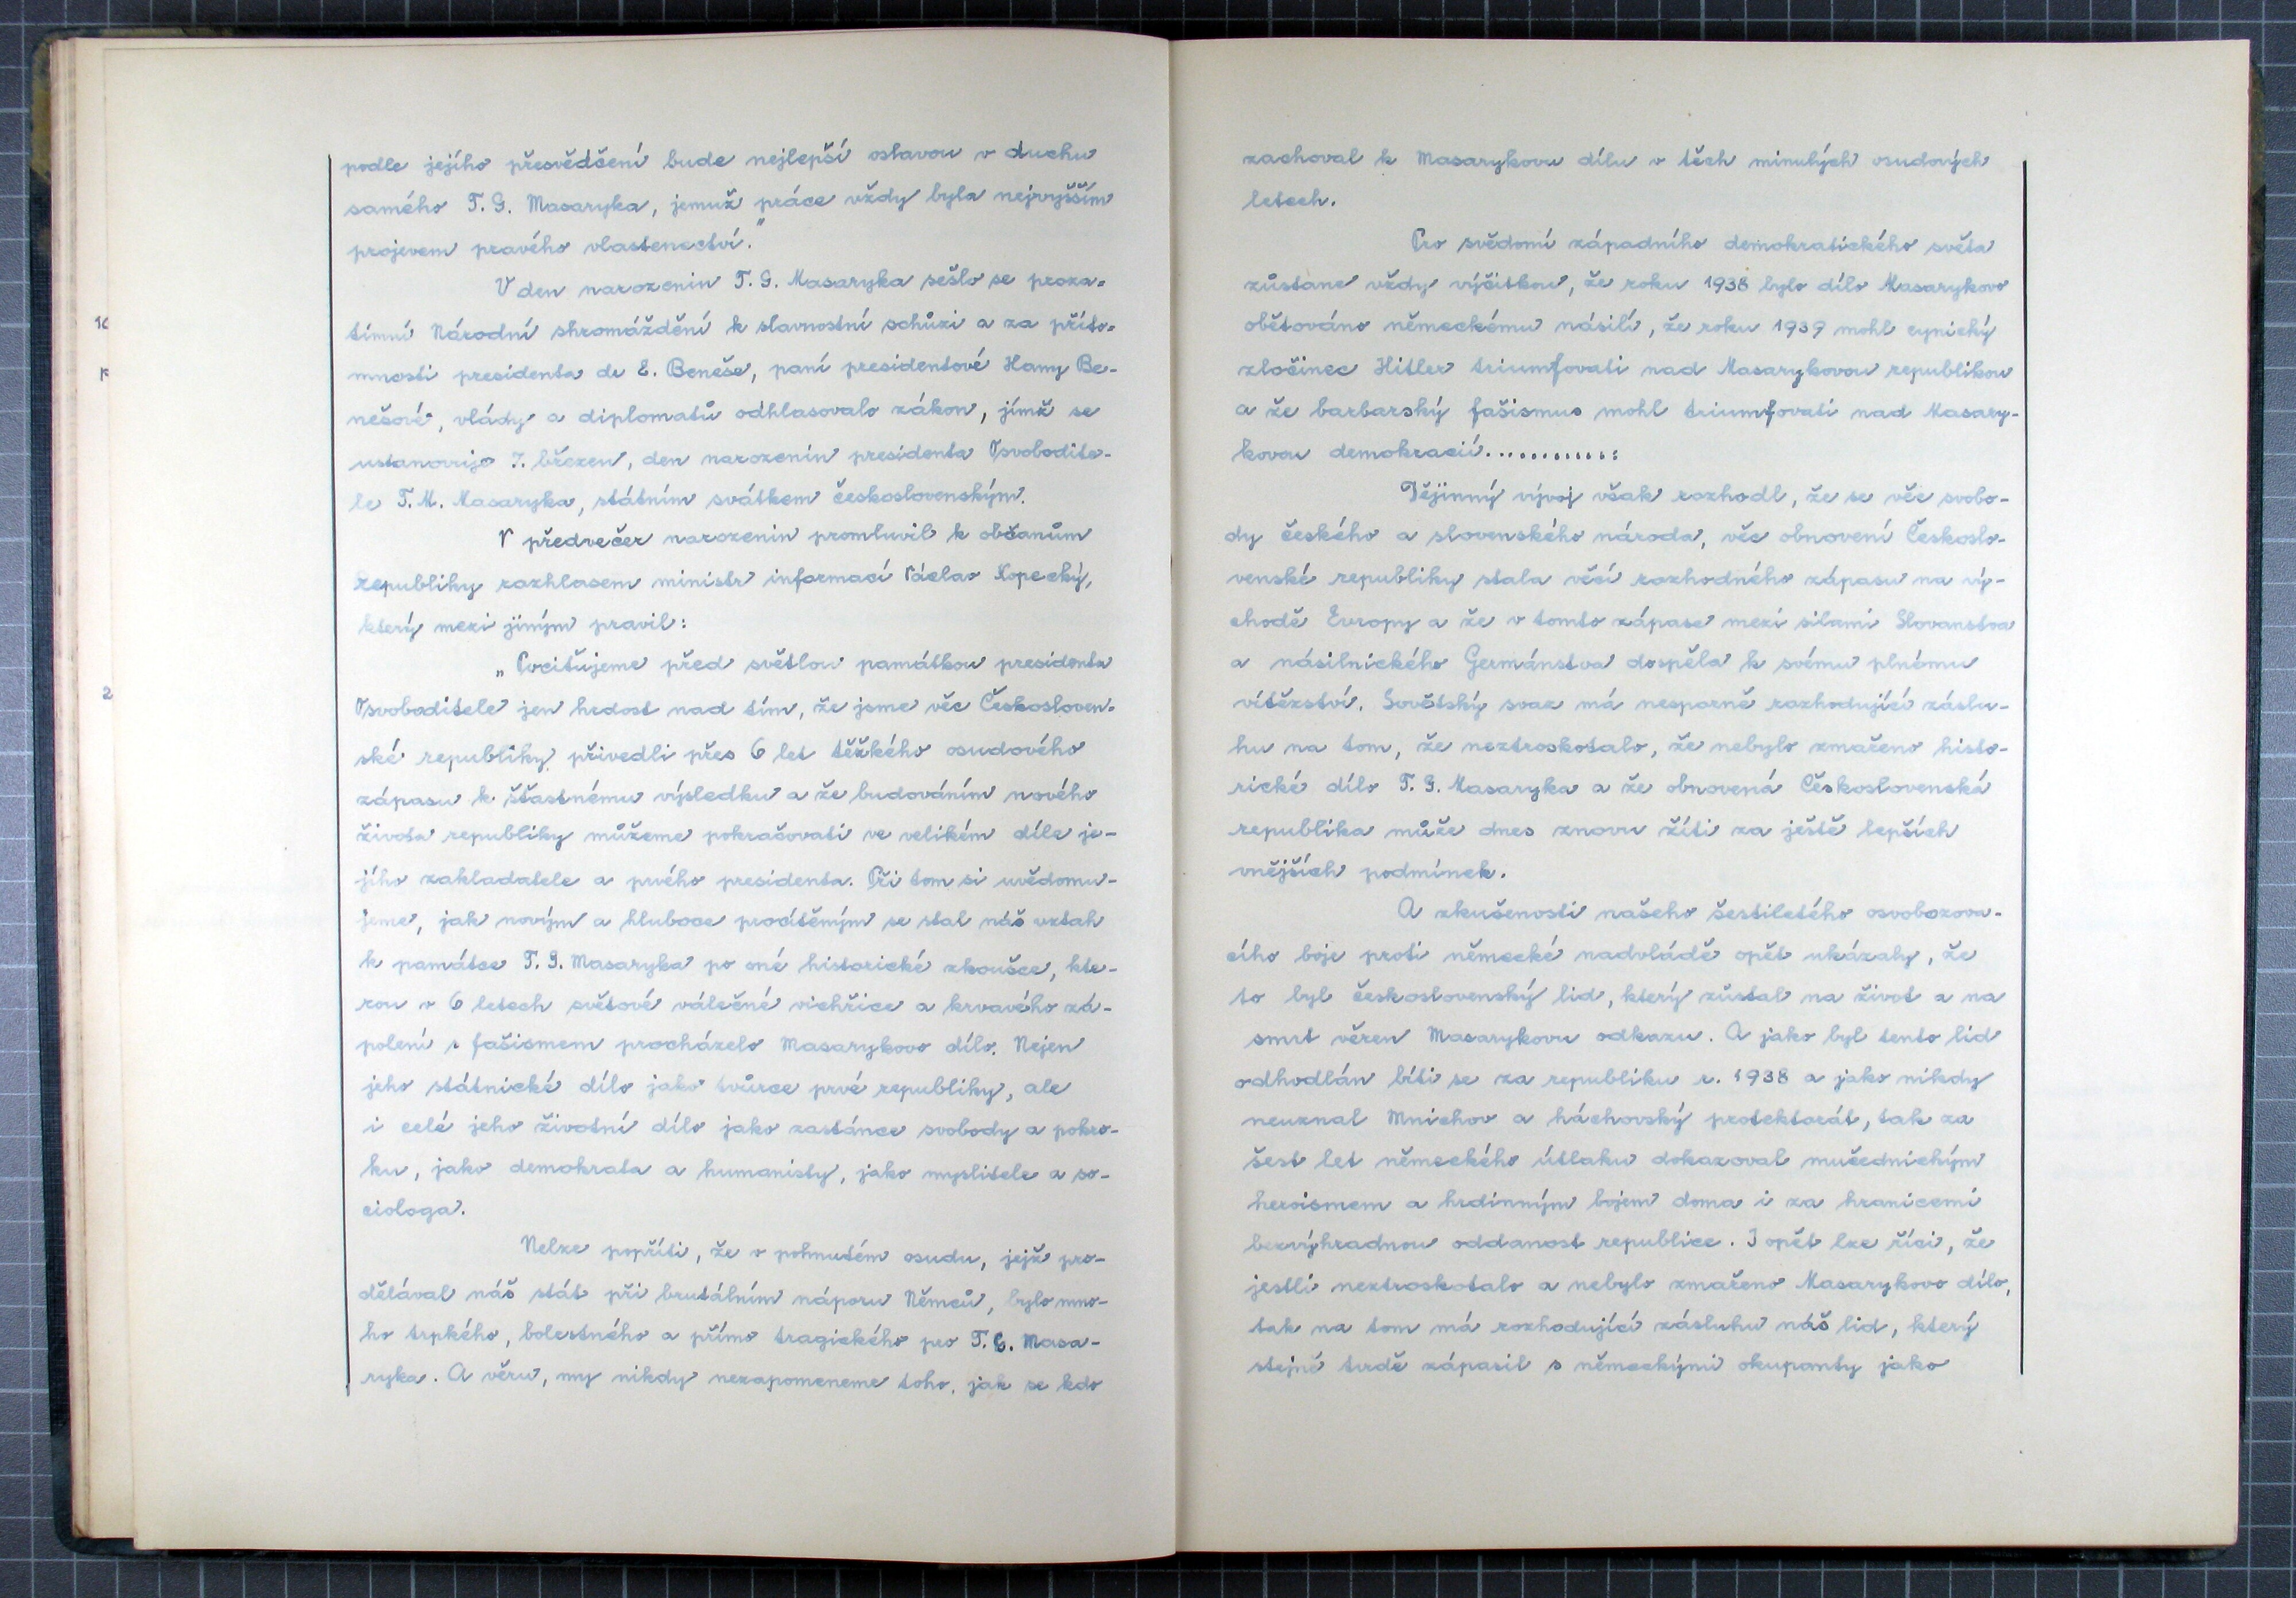 podle jejího přesvědčení bude nejlepší oslavou v duchu
samého T. G. Masaryka, jemuž práce vždy byla nejvyšším
projevem pravého vlastenectví."
V den narozenin T. G. Masaryka sešlo se proza=
tímní Národní shromáždění k slavnostní schůzi a za příto=
mnosti presidenta dr E. Beneše, paní presidentové Hany Be-
nešové, vlády a diplomatů odhlasovalo zákon, jímž se
ustanovuje 7. březen, den narozenin presidenta Osvobodite-
le T. M. Masaryka, státním svátkem československým.
V předvečer narozenin promluvil k občanům
republiky rozhlasem ministr informací Václav Kopecký,
který mezi jiným pravil:
„Pociťujeme před světlou památkou presidenta
Osvoboditele jen hrdost nad tím, že jsme věc Českosloven-
ské republiky přivedli přes 6 let těžkého osudového
zápasu k šťastnému výsledku a že budováním nového
života republiky můžeme pokračovati ve velikém díle je-
jího zakladatele a prvého presidenta. Při tom si uvědomu-
jeme, jak novým a hluboce procítěným se stal náš vztah
k památce T. G. Masaryka po oné historické zkoušce, kte-
rou v 6 letech světové válečné vichřice a krvavého zá-
polení s fašismem procházelo Masarykovo dílo. Nejen
jeho státnické dílo jako tvůrce prvé republiky, ale
i celé jeho životní dílo jako zastánce svobody a pokro-
ku, jako demokrata a humanisty, jako myslitele a so-
ciologa.
Nelze popříti, že v pohnutém osudu, jejž pro-
dělával náš stát při brutálním náporu Němců, bylo mno-
ho trpkého, bolestného a přímo tragického pro T. G. Masa-
ryka. A věru, my nikdy nezapomeneme toho, jak se kdo
zachoval k Masarykovu dílu v těch minulých osudových
letech.
Pro svědomí západního demokratického světa
zůstane vždy výčitkou, že roku 1938 bylo dílo Masarykovo
obětováno německému násilí, že roku 1939 mohl cynický
zločinec Hitler triumfovati nad Masarykovou republikou
a že barbarský fašismus mohl triumfovati nad Masary-
kovou demokracií............:
Dějinný vývoj však rozhodl, že se věc svobo-
dy českého a slovenského národa, věc obnovení Českoslo-
venské republiky stala věcí rozhodného zápasu na vý-
chodě Evropy a že v tomto zápase mezi silami Slovanstva
a násilnického Germánstva dospěla k svému plnému
vítězství. Sovětský svaz má nesporně rozhodující záslu-
hu na tom, že neztroskotalo, že nebylo zmařeno histo-
rické dílo T. G. Masaryka a že obnovená Československá
republika může dnes znovu žíti za ještě lepších
vnějších podmínek.
A zkušenosti našeho šestiletého osvobozova-
cího boje proti německé nadvládě opět ukázaly, že
to byl československý lid, který zůstal na život a na
smrt věren Masarykovu odkazu. A jako byl tento lid
odhodlán bíti se za republiku r. 1938 a jako nikdy
neuznal Mnichov a háchovský protektorát, tak za
šest let německého útlaku dokazoval mučednickým
heroismem a hrdinným bojem doma i za hranicemi
bezvýhradnou oddanost republice. I opět lze říci, že
jestli neztroskotalo a nebylo zmařeno Masarykovo dílo,
tak na tom má rozhodující zásluhu náš lid, který
stejně tvrdě zápasil s německými okupanty jako